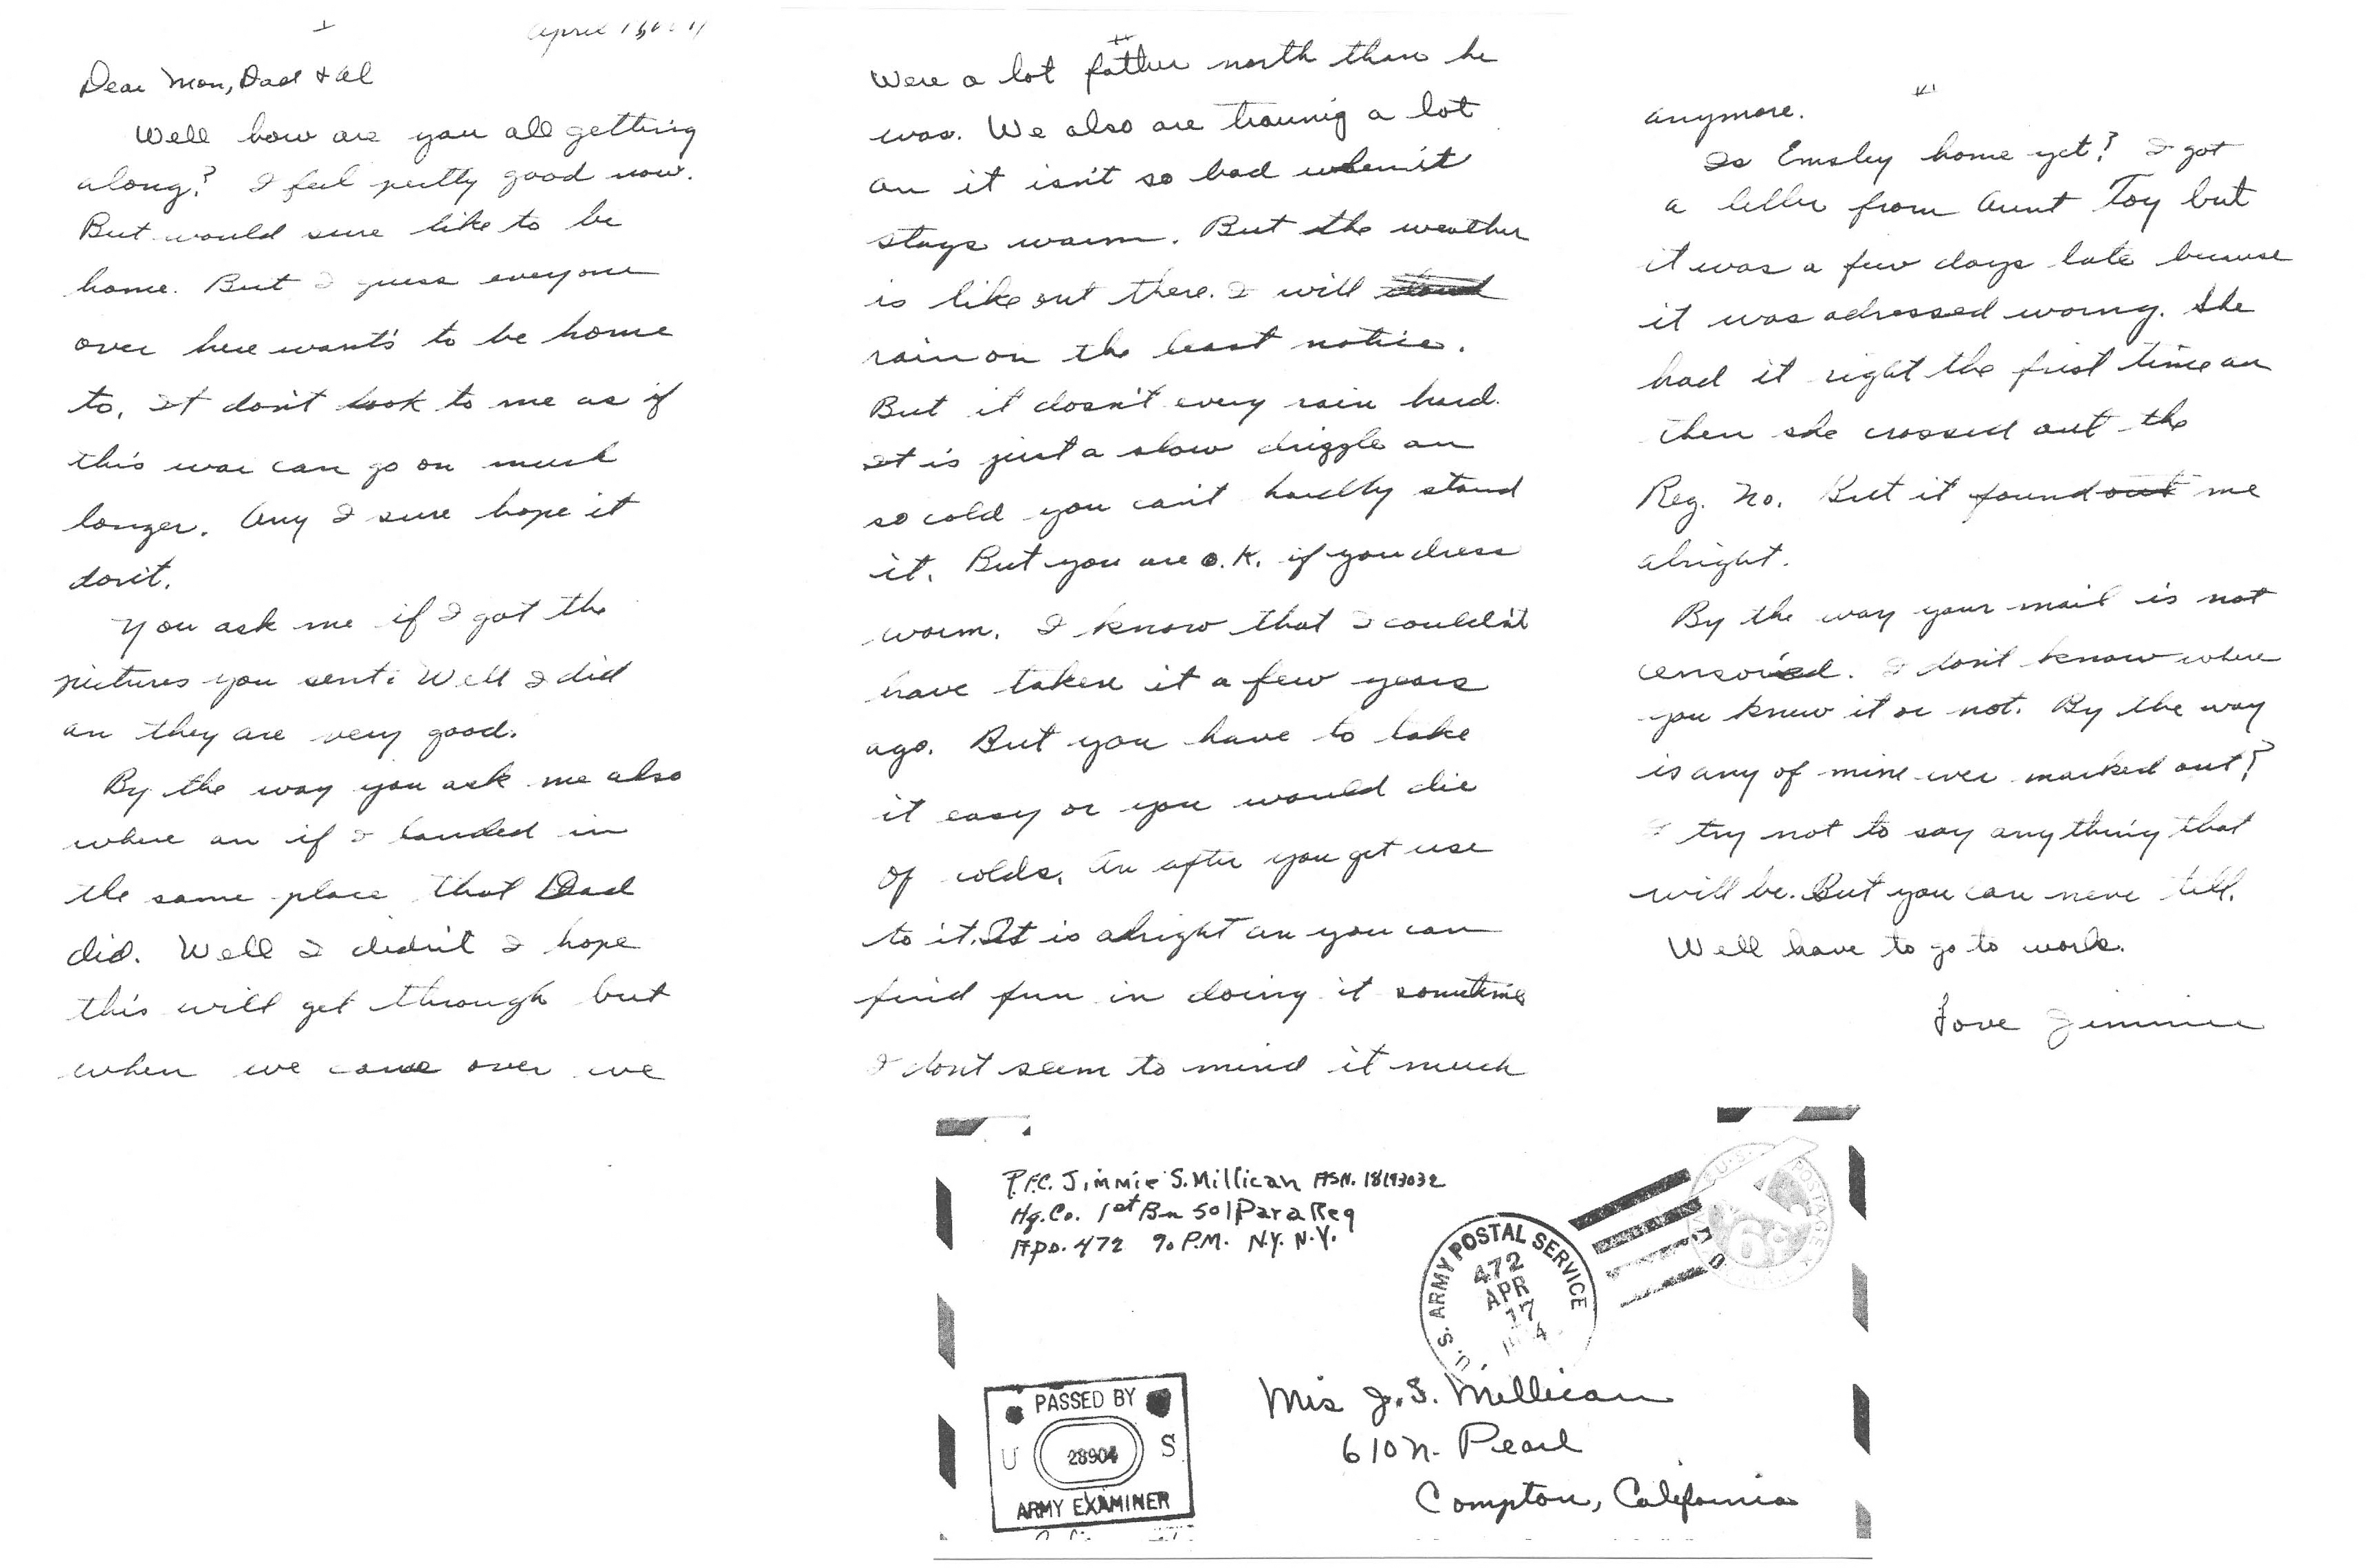 I
April
Dear Mom, Dad & Al
Well how are you all getting
along? I feel pertty good now.
But would sure like to be
home. But I guess everyone
over here want's to be home
to. It don't look to me as if
this war can go on much
longer. Any I sure hope it
don't.
You ask me if I got the
pictures you sent. Well I did
an they are very good.
By the way you ask me also
where an if I landed in
the same place that Dad
did. Well I didn't I hope
this will get through but
when we came over we
II
were a lot father north than he
was. We also are trainig a lot
an it isn't so bad when it
stays warm. But the weather
is like out there. I will
rain on the least notice.
But it dosn't every rain hard.
It is just a slow drizzle an
so cold you can't hardly stand
it. But you are O.K. if you dress
warm. I know that I couldn't
have taken it a few years
ago. But you have to take
it easy or you would die
of colds. An after you get use
to it. It is alright an you can
find fun in doing it sometime
I don't seem to mind it much
III
anymore.
Is Emsley home yet? I got
a letter from Aunt Toy but
it was a few days late because
it was adressed worng. She
had it right the first time an
then she crossed out the
Reg. No. But it found out me
alright.
By the way your mail is not
censored. I don't know where
you knew it or not. By the way
is any of mine ever marked out?
I try not to say anything that
will be. But you can neve tell.
Well have to go to work.
Love Jimmie
P.F.C. Jimmie S. Millican ASN. 18193032
Hq. Co. 1st Bn 501 Para Reg
A.P.O. 472 % P.M. N.Y. N.Y.
U.S. ARMY POSTAL SERVICE
472
APR
17
U.S. POSTAGE
6¢
PASSED BY
U 28904 S
ARMY EXAMINER
Mrs J. S. Millican
610 N. Pearl
Compton, California